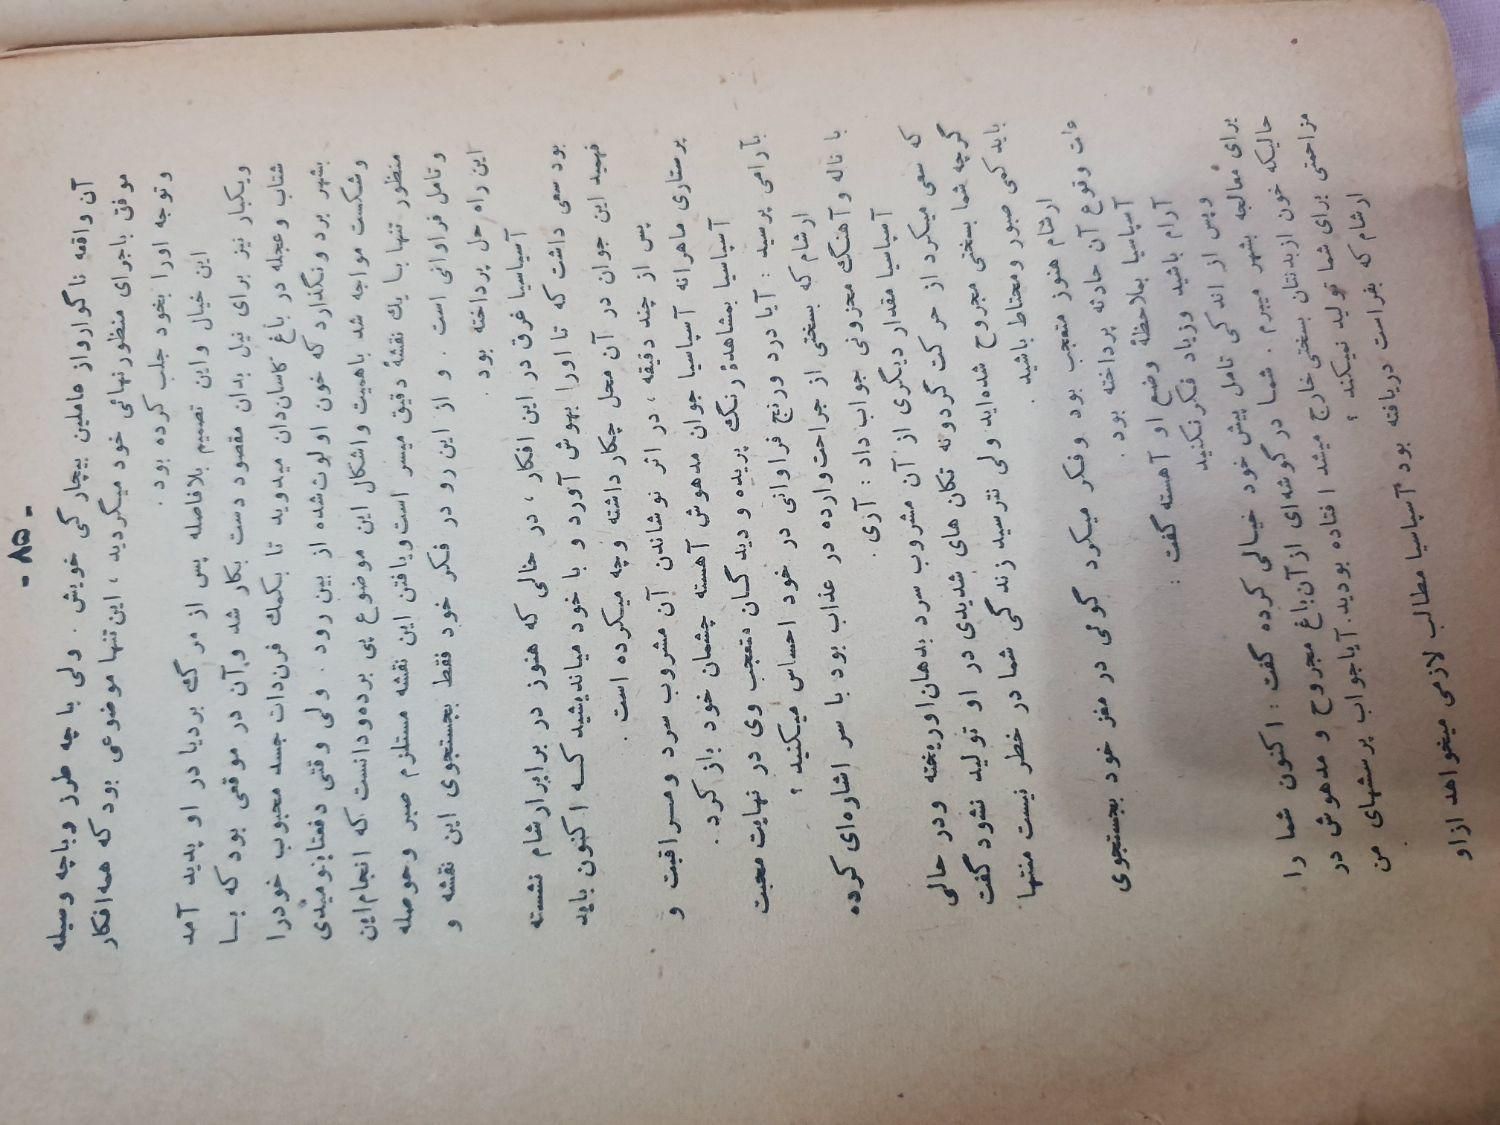 - ۸۵ -
آن واقعه ناگوارواز عاملین بیچارگی خویش . ولی با چه طرز وباچه وسیله
موفق باجرای منظورنهائی خود میگردید ، این تنها موضوعی بود که همه افکار
وتوجه اورا بخود جلب کرده بود .
این خیال واین تصمیم بلافاصله پس از مرگ بردیا در او پدید آمد
ویکبار نیز برای نیل بدان مقصود دست بکار شد وآن در موقعی بود که بسا
شتاب وعجله در باغ کاسان‌دان میدوید تا بکمك فرن‌دات جسد محبوب خودرا
بشهر برد ونگذارد که خون او لوث‌شده از بین رود . ولی وقتی دفعتابنومیدی
وشکست مواجه شد باهمیت واشکال این موضوع پی برده‌ودانست که انجام‌این
منظور تنها بسا یك نقشهٔ دقیق میسر است‌ویافتن این نقشه مستلزم صبر وحوصله
وتامل فراوانی است . و از این رو در فکر خود فقط بجستجوی این نقشه و
این راه حل پرداخته بود .
آسپاسیا غرق در این افکار ، در حالی که هنوز در برابرارشام نشسته
بود سعی داشت که تا اورا بهوش آورد و با خود میاندیشید کسه اکنون باید
فهمید این جوان در آن محل چکار داشته وچه میکرده است .
پس از چند دقیقه ، در اثر نوشاندن آن مشروب سرد ومسراقبت و
پرستاری ماهرانه آسپاسیا جوان مدهوش آهسته چشمان خود باز کرد .
آسپاسیا بمشاهدهٔ رنگ پریده و دیدگسان متعجب وی در نهایت محبت
بآرامی پرسید : آیا درد ورنج فراوانی در خود احساس میکنید ؟
ارشام که بسختی از جراحت‌وارده در عذاب بود با سر اشاره‌ای کرده
با ناله وآهنگ محزونی جواب داد : آری .
آسپاسیا مقدار دیگری از آن مشروب سرد بدهان‌اوریخته ودر حالی
که سعی میکرد از حرکت گردونه تکان های شدیدی در او تولید نشود گفت
گرچه شما بسختی مجروح شده‌اید ولی نترسید زندگی شما در خطر نیست منتها
باید کمی صبور ومحتاط باشید .
ارشام هنوز متعجب بود وفکر میکرد گوئی در مغز خود بجستجوی
وقوع آن حادثه پرداخته بود .
آسپاسیا بملاحظهٔ وضع او آهسته گفت :
آرام باشید وزیاد فکرنکنید
وپس از اندکی تامل پیش خود خیالی کرده گفت : اکنون شما را
برای معالجه بشهر میبرم . شما در گوشه‌ای ازآن‌باغ مجروح و مدهوش در
حالیکه خون ازبدنتان بسختی خارج میشد افتاده بودید. آیاجواب پرسشهای من
مزاحمتی برای شما تولید نمیکند ؟
ارشام که بفراست دریافته بود آسپاسیا مطالب لازمی میخواهد ازاو